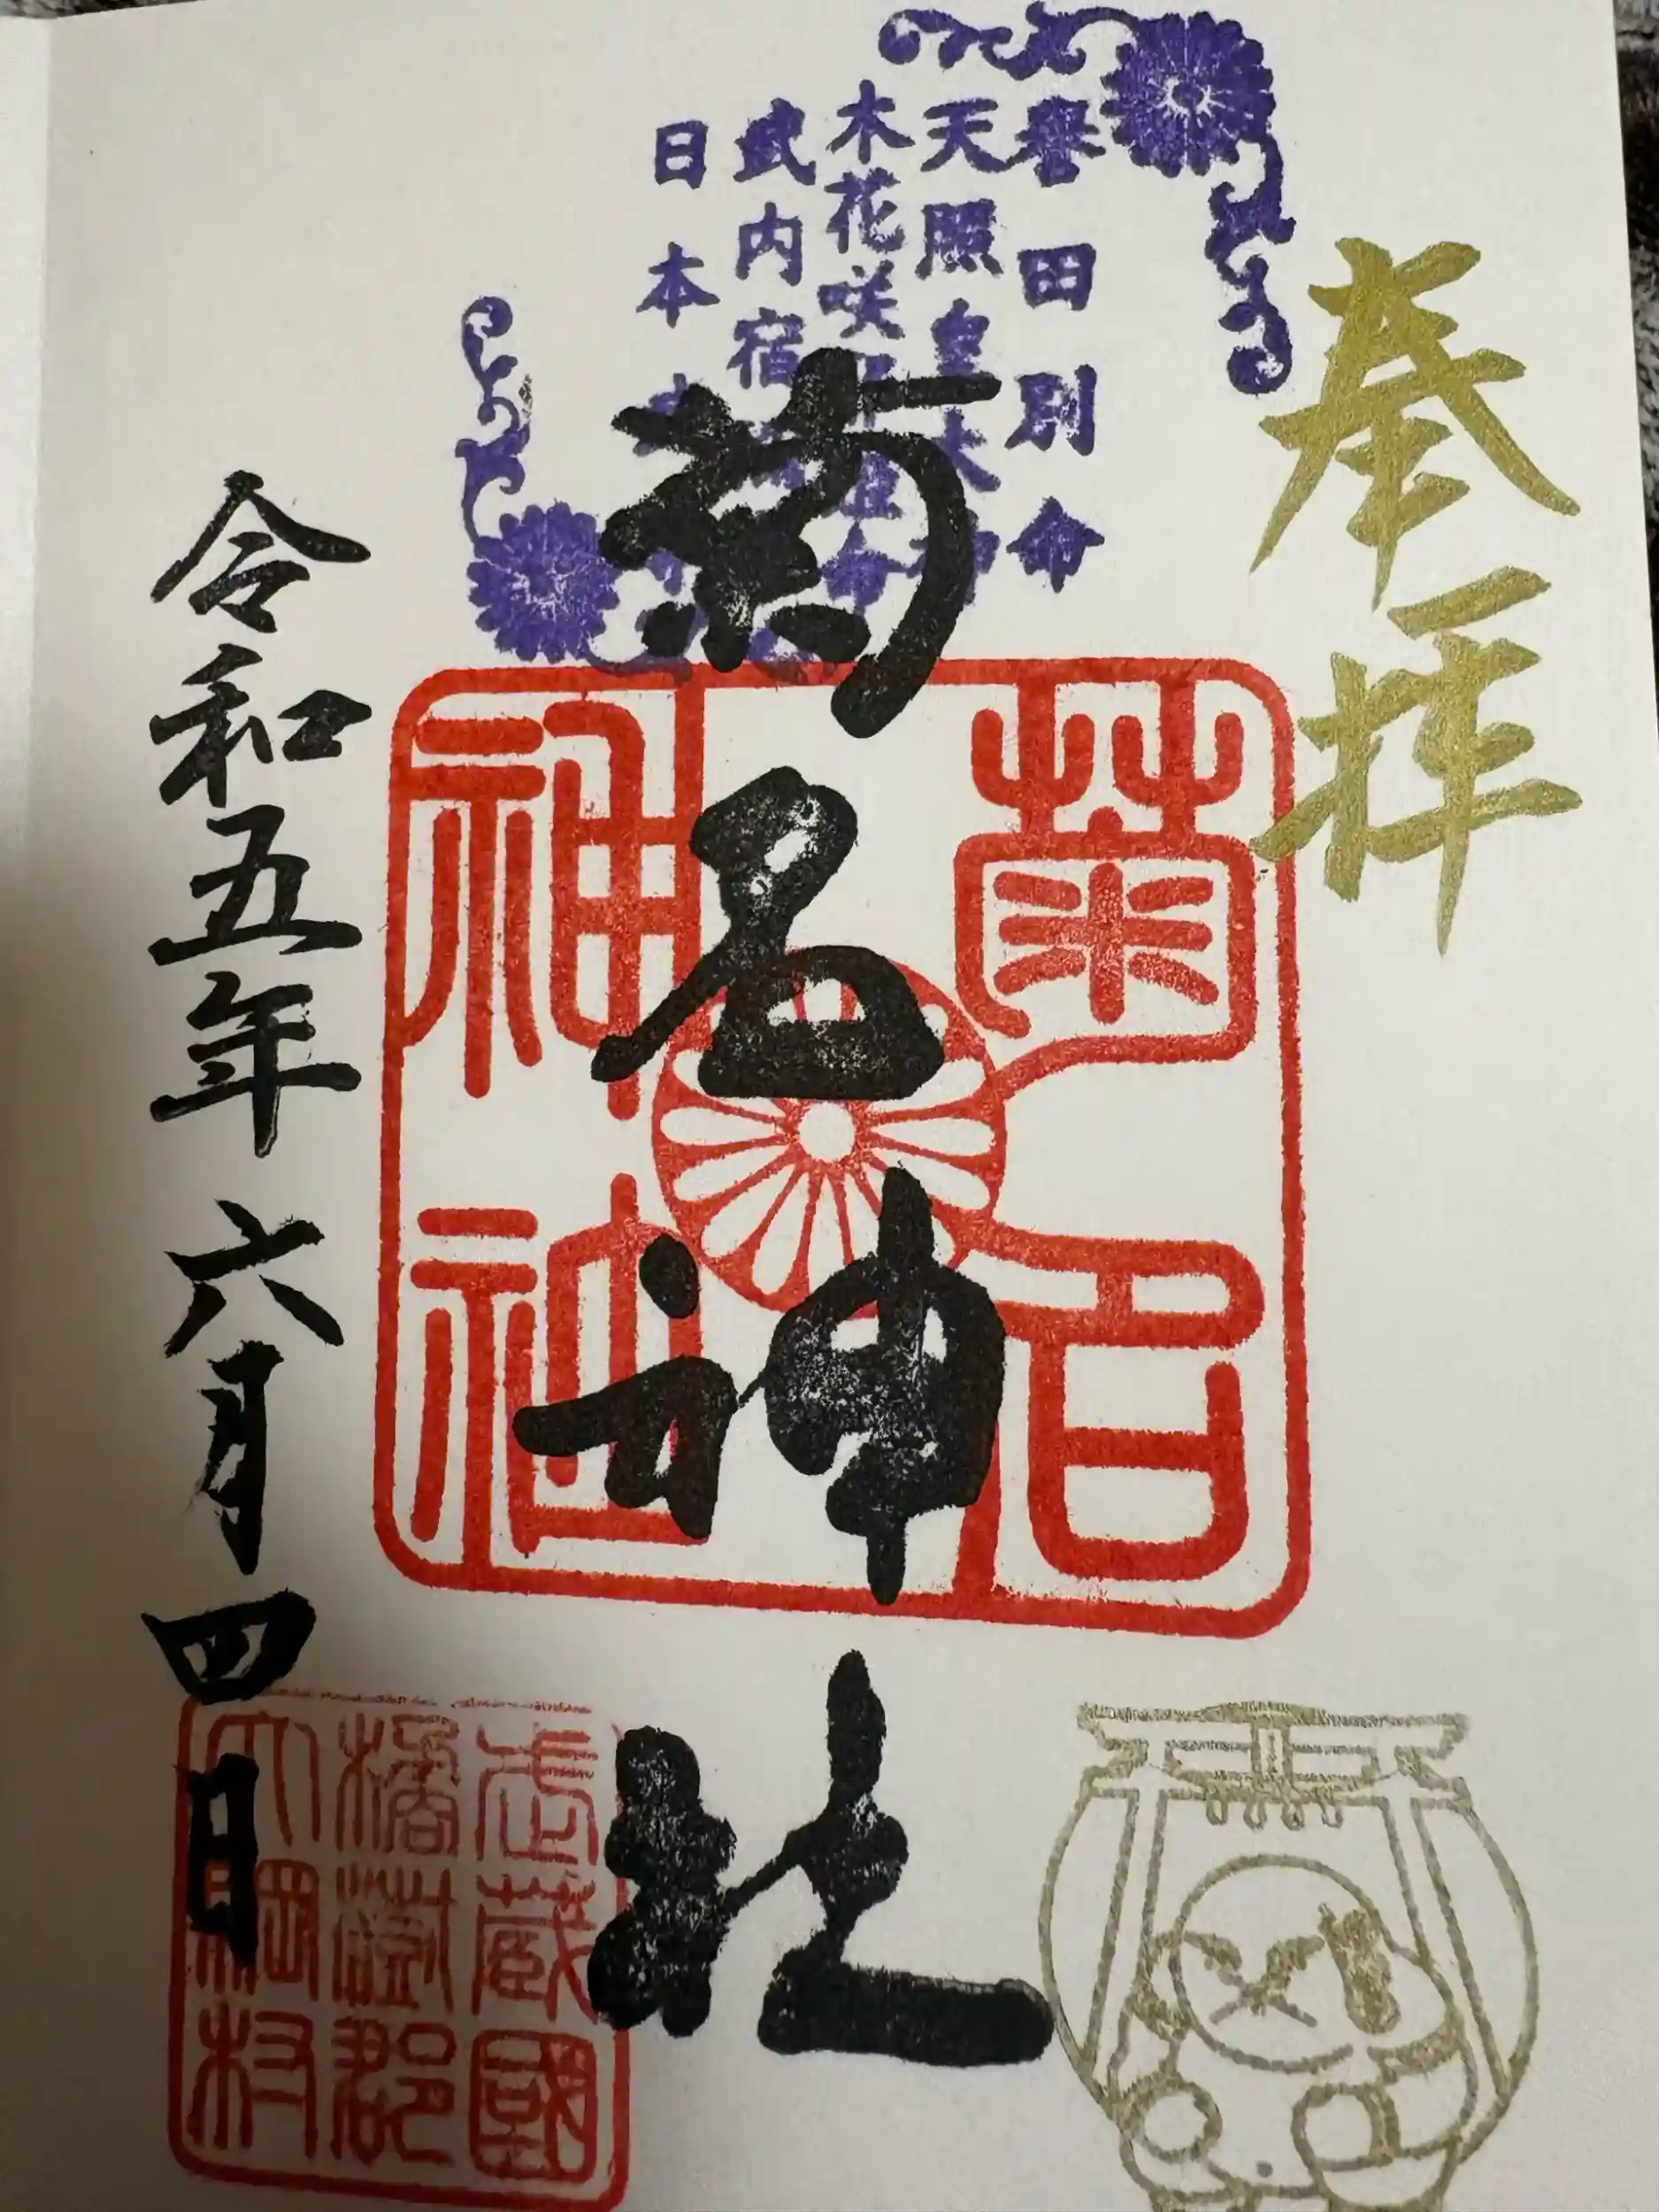 奉拝
譽田別命
天照皇大神
木花咲
武内宿
日本
菊名神社
菊名
神社
令和五年六月四日
武蔵國
橘樹郡
大綱村